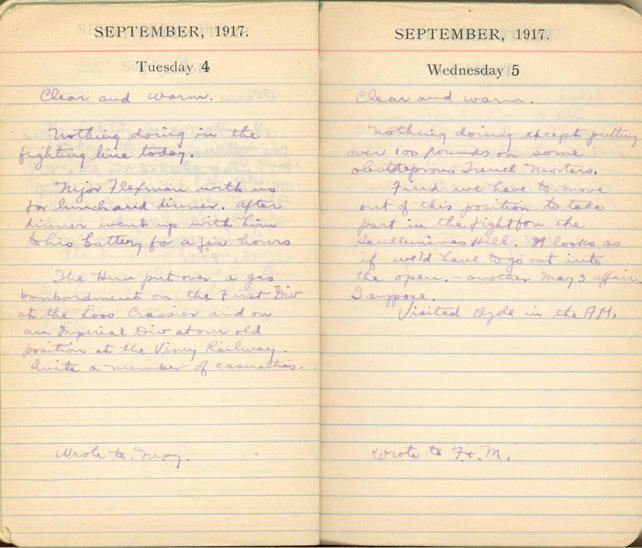 SEPTEMBER, 1917.
Tuesday 4
Clear and warm.
Nothing doing in the
fighting line today.
Major Flexman with us
for lunch and dinner. After
dinner went up with him
to his battery for a few hours
The Hun put over a gas
bombardment on the First Div
at the Loos Crassier and on
an Imperial Div at our old
position at the Vimy Railway.
Quite a number of casualties.
Wrote to May.
SEPTEMBER, 1917.
Wednesday 5
Clear and warm.
Nothing doing except putting
over 100 rounds on some
Trench Morters.
Find we have to move
out of this position to take
part in the fight for the
Hill. It looks as
if we'd have to go out into
the open. - another May 3 affair
I suppose.
Visited in the A.M.
Wrote to F. & M.